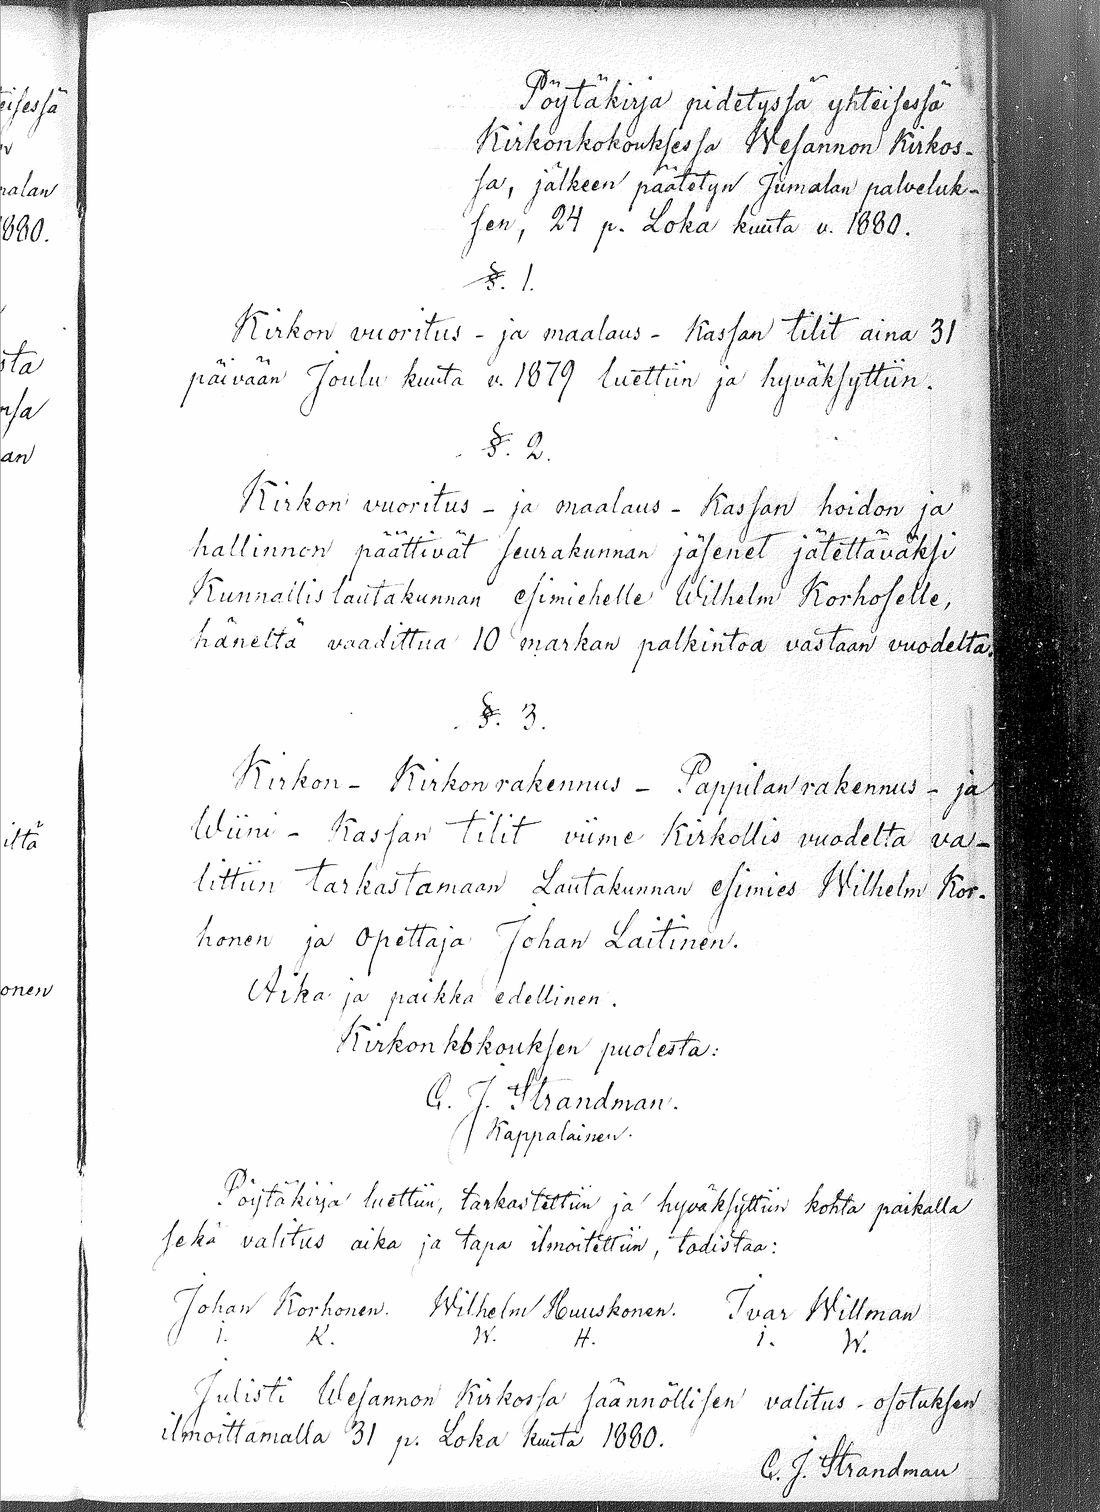 Pöytäkirja pidetyssä yhteisessä
Kirkonkokouksessa Wesannon Kirkos-
sa, jälkeen päätetyn Jumalan palveluk-
sen, 24 p. Loka kuuta v. 1880.
§. 1.
Kirkon vuoritus - ja maalaus - Kassan tilit aina 31
päivään Joulu kuuta v. 1879 luettiin ja hyväksyttiin.
§. 2.
Kirkon vuoritus - ja maalaus - Kassan hoidon ja
hallinnon päättivät seurakunnan jäsenet jätettäväksi
Kunnallislautakunnan esimiehelle Wilhelm Korhoselle,
häneltä vaadittua 10 markan palkintoa vastaan vuodelta.
§. 3.
Kirkon - Kirkonrakennus - Pappilanrakennus - ja
Wiini - Kassan tilit viime Kirkollis vuodelta va-
littiin tarkastamaan Lautakunnan esimies Wilhelm Kor-
honen ja Opettaja Johan Laitinen.
Aika ja paikka edellinen.
Kirkonkokouksen puolesta:
C. J. Strandman.
Kappalainen.
Pöytäkirja luettiin, tarkastettiin ja hyväksyttiin kohta paikalla
sekä valitus aika ja tapa ilmoitettiin, todistaa:
Johan Korhonen. Wilhelm Huuskonen. Ivar Willman
I. K. W. H. I. W.
Julisti Wesannon Kirkossa säännöllisen valitus - osotuksen
ilmoittamalla 31 p. Loka kuuta 1880.
C. J. Strandman